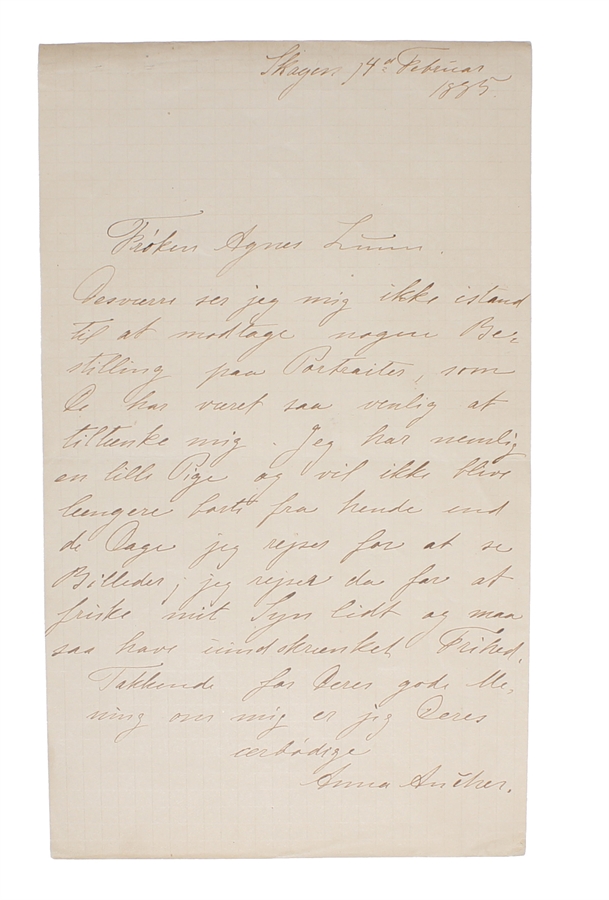 Skagen 14de Februar
1885.
Frøken Agnes Lunn.
Desværre ser jeg mig ikke istand
til at modtage nogen Be-
stilling paa Portraiter, som
De har været saa venlig at
tiltænke mig. Jeg har nemlig
en lille Pige og vil ikke blive
længere borte fra hende end
de Dage jeg rejser for at se
Billeder; jeg rejser da for at
friske mit Syn lidt og maa
saa have uindskrænket Frihed.
Takkende for Deres gode Me-
ning om mig er jeg Deres
ærbødige
Anna Ancher.